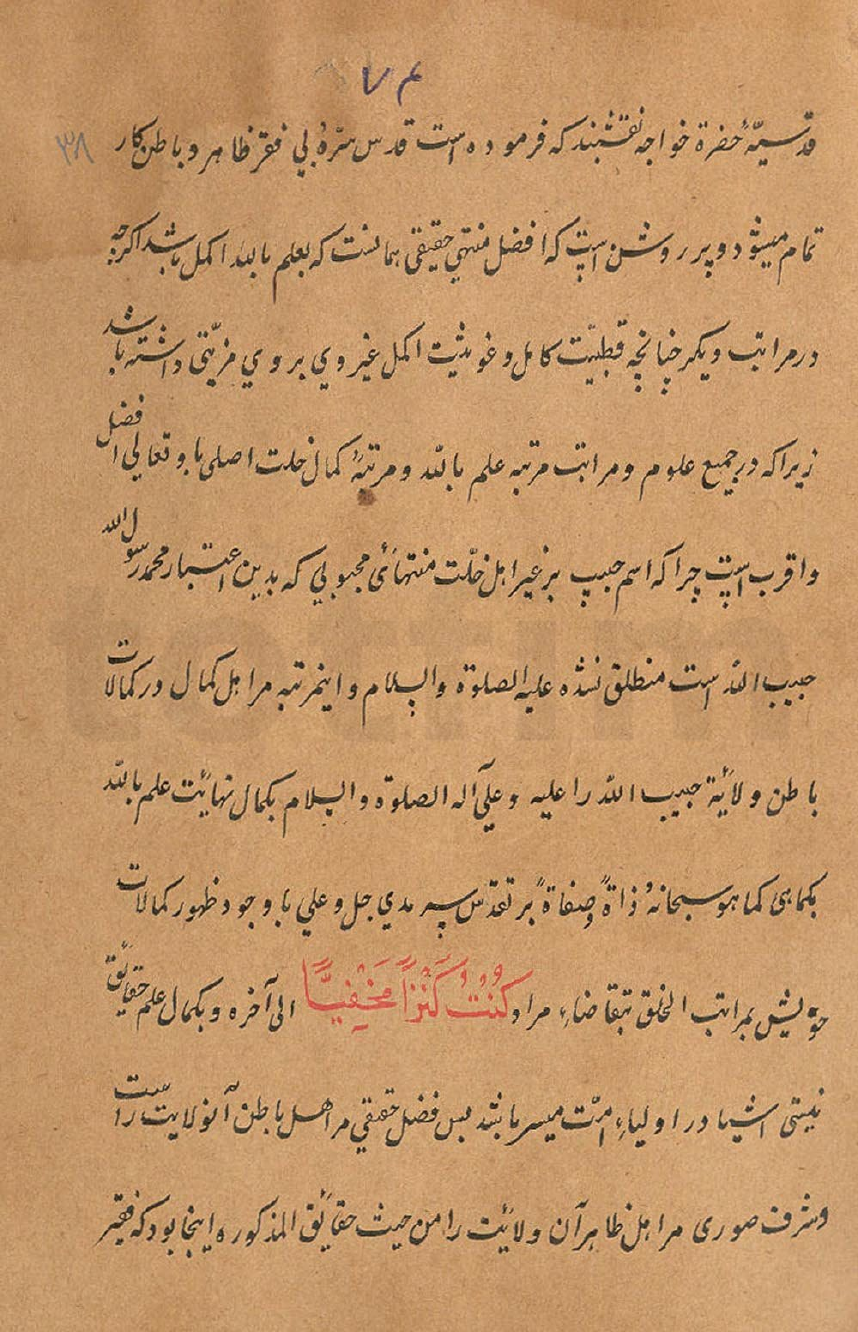 ۷۴
۳۸
قدسیهٔ حضرة خواجه نقشبند که فرموده است قدس سرهٔ بی فقر ظاهر و باطن کار
تمام میشود و پر روشن است که افضل منتهی حقیقی همانست که بعلم بالله اکمل باشد اکرچه
در مراتب دیکر چنانچه قطبیّت کامل و غوثیت اکمل غیر وی بر وی مزیّتی داشته باشد
زیرا که در جمیع علوم و مراتب مرتبه علم بالله و مرتبهٔ کمال خلت اصلی باو تعالی افضل
و اقرب است چرا که اسم حبیب بر غیر اهل خلّت منتهائ محبوبی که بدین اعتبار محمد رسول الله
حبیب الله است منطلق نشده علیه الصلوة والسلام و اینمرتبه مر اهل کمال در کمالات
باطن ولائة حبیب الله را علیه وعلی آله الصلوة والسلام بکمال نهائت علم بالله
بکماهی کما هو سبحانهٔ ذاةً وصفاةً بر تقدّس سرمدی جل وعلی با وجود ظهور کمالات
خویش بمراتب الخلق بتقاضاء مراد کُنْتُ کَنْزاً مَخْفِیّاً الی آخره و بکمال علم حقائق
نیستی اشیا در اولیاء امّت میسر باشد پس فضل حقیقی مر اهل باطن آنولایت راست
و شرف صوری مر اهل ظاهر آن ولائت را من حیث حقائق المذکوره اینجا بود که فقیر